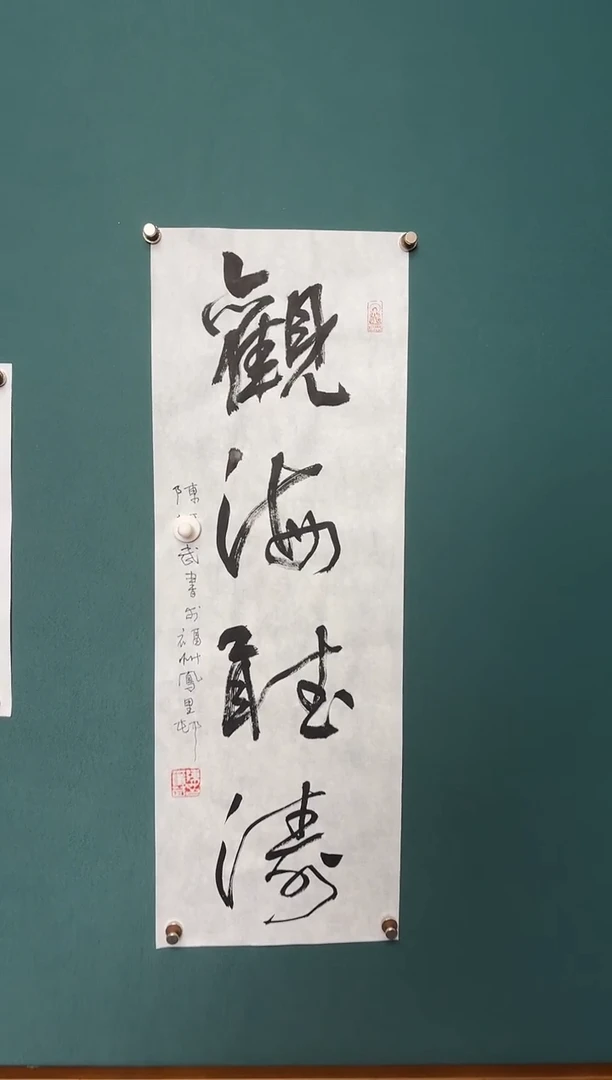 觀海聽濤
陳 武書於福州鳳里邨